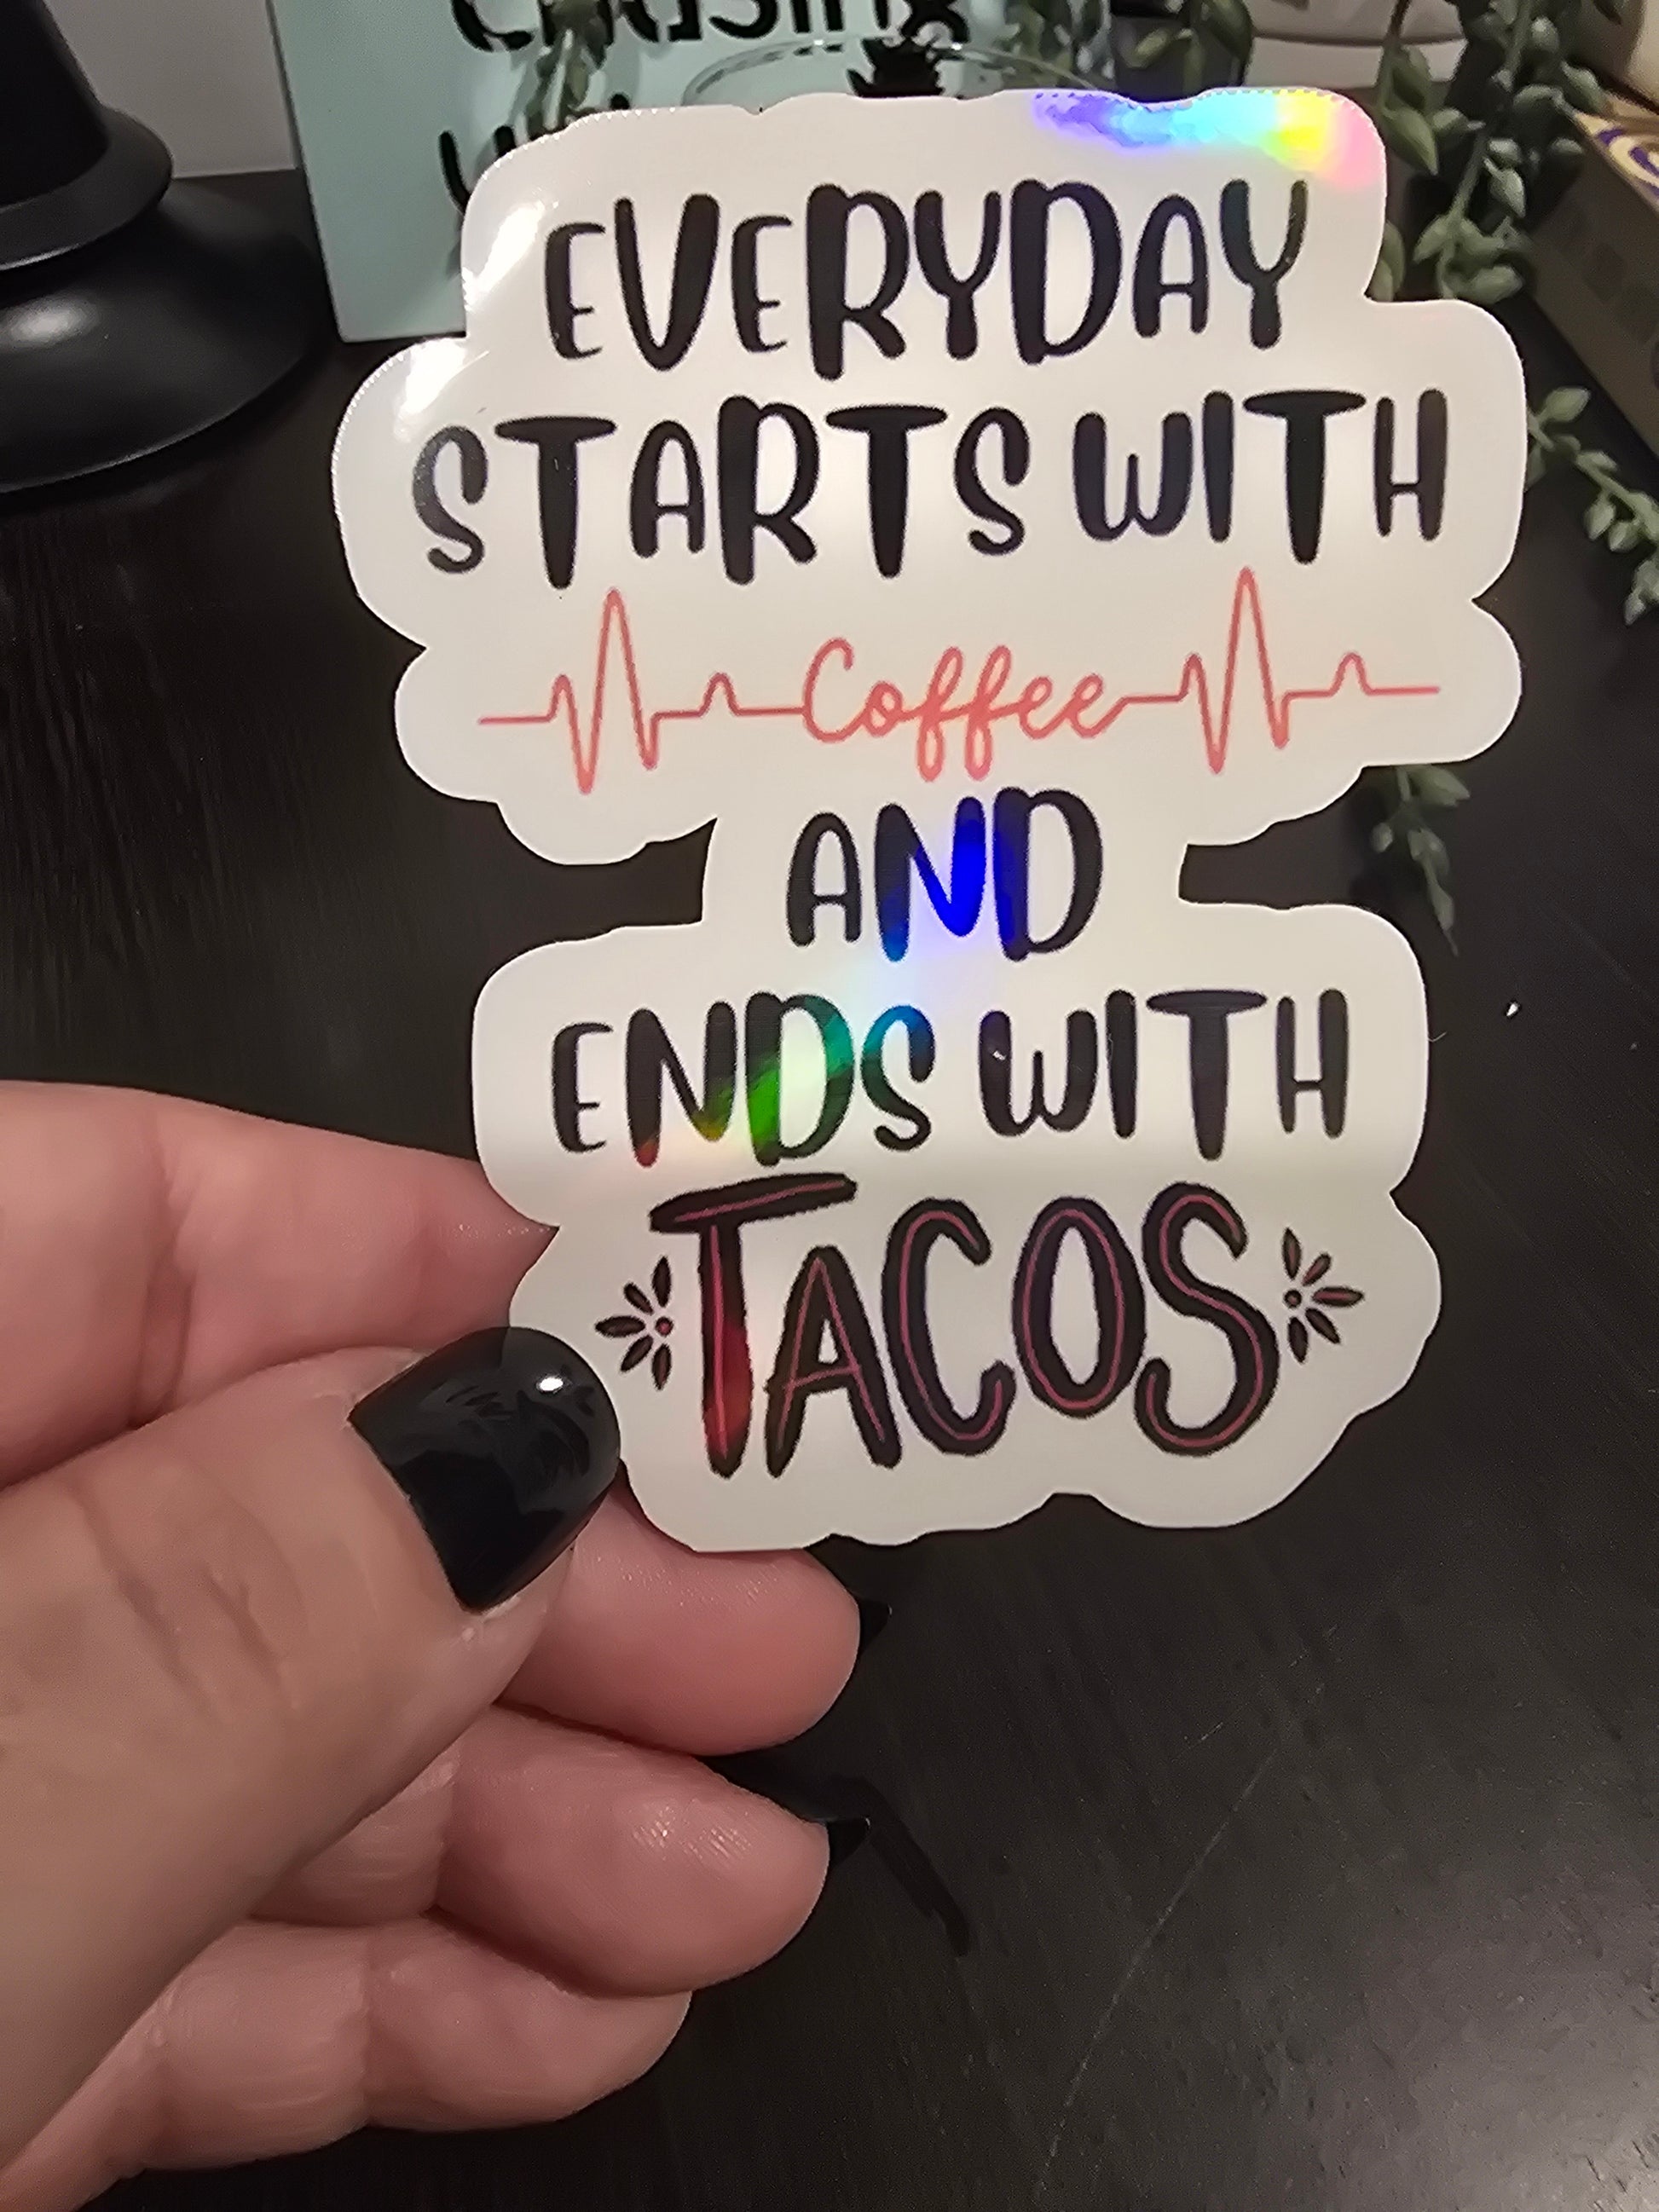 EVERYDAY
STARTS WITH
Coffee
AND
ENDS WITH
TACOS